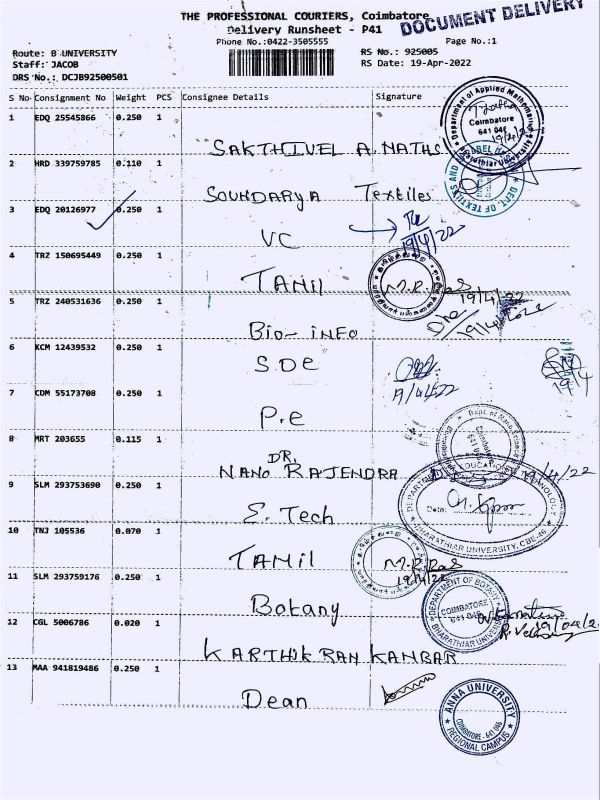 THE PROFESSIONAL COURIERS, Coimbatore
DOCUMENT DELIVERY
Delivery Runsheet - P41
Phone No.:0422-3505555
Page No.:1
Route: B UNIVERSITY
RS No.: 925005
Staff: JACOB
RS Date: 19-Apr-2022
DRS No.: DCJB92500501
S No Consignment No Weight PCS Consignee Details Signature
1 EDQ 25545866 0.250 1
Department of Applied Mathematics
Coimbatore
641 046
19/4/22
Bharathiar University
SAKTHIVEL A. MATHS
2 HRD 339759785 0.110 1
DEPT. OF TEXTILES AND
SOUNDARYA Textiles
3 EDQ 20126977 0.250 1
19/4/22
VC
4 TRZ 150695449 0.250 1
TAMIL
M.R. Ras
19/4/22
5 TRZ 240531636 0.250 1
19/4/2022
BIO- INFO
6 KCM 12439532 0.250 1
S.DE
19/4
19/4/22
7 CDM 55173708 0.250 1
P.e
8 MRT 203655 0.115 1
Coimbatore
641 046
DR.
NANO RAJENDRA
19/4/22
9 SLM 293753690 0.250 1
Date:
BHARATHIAR UNIVERSITY, CBE-46
E. Tech
10 TNJ 105536 0.070 1
TAMIL
M.R. Ras
19/4/22
11 SLM 293759176 0.250 1
DEPARTMENT OF BOTANY
COIMBATORE
641 046
BHARATHIAR UNIVERSITY
Botany
12 CGL 5006786 0.020 1
KARTHIK RAN KANBAR
13 MAA 941819486 0.250 1
Dean
ANNA UNIVERSITY
COIMBATORE - 641 046
REGIONAL CAMPUS